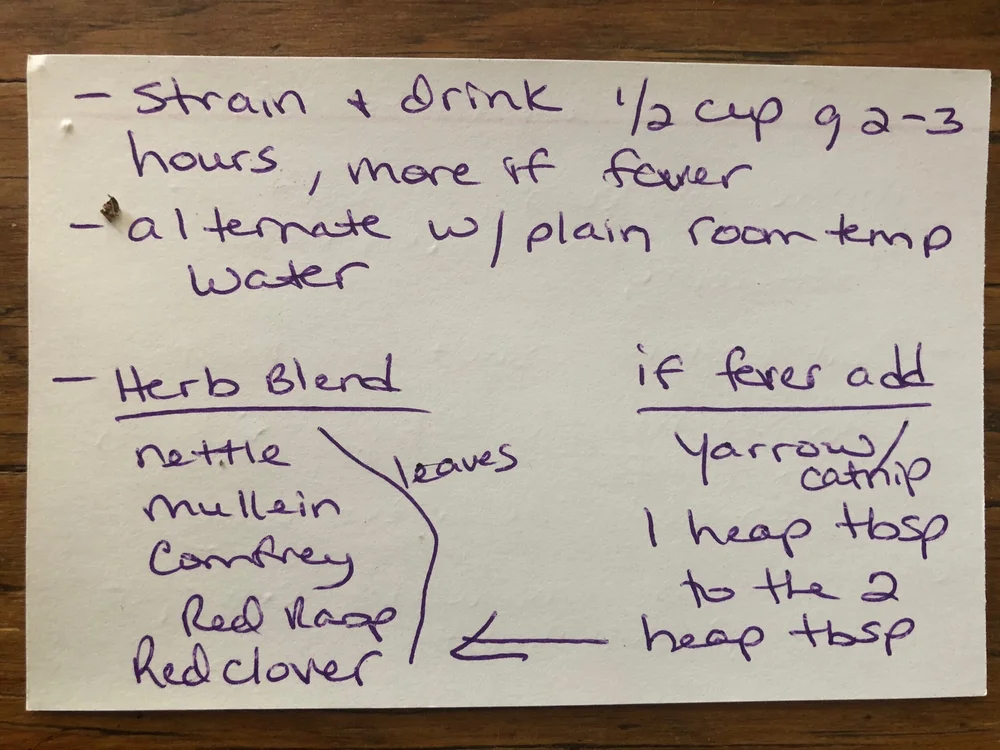 - Strain + drink 1/2 cup q 2-3
hours, more if fever
- alternate w/ plain room temp
water
- Herb Blend
nettle
mullein
Comfrey
Red Rasp
Red clover
leaves
if fever add
Yarrow/
catnip
1 heap tbsp
to the 2
heap tbsp